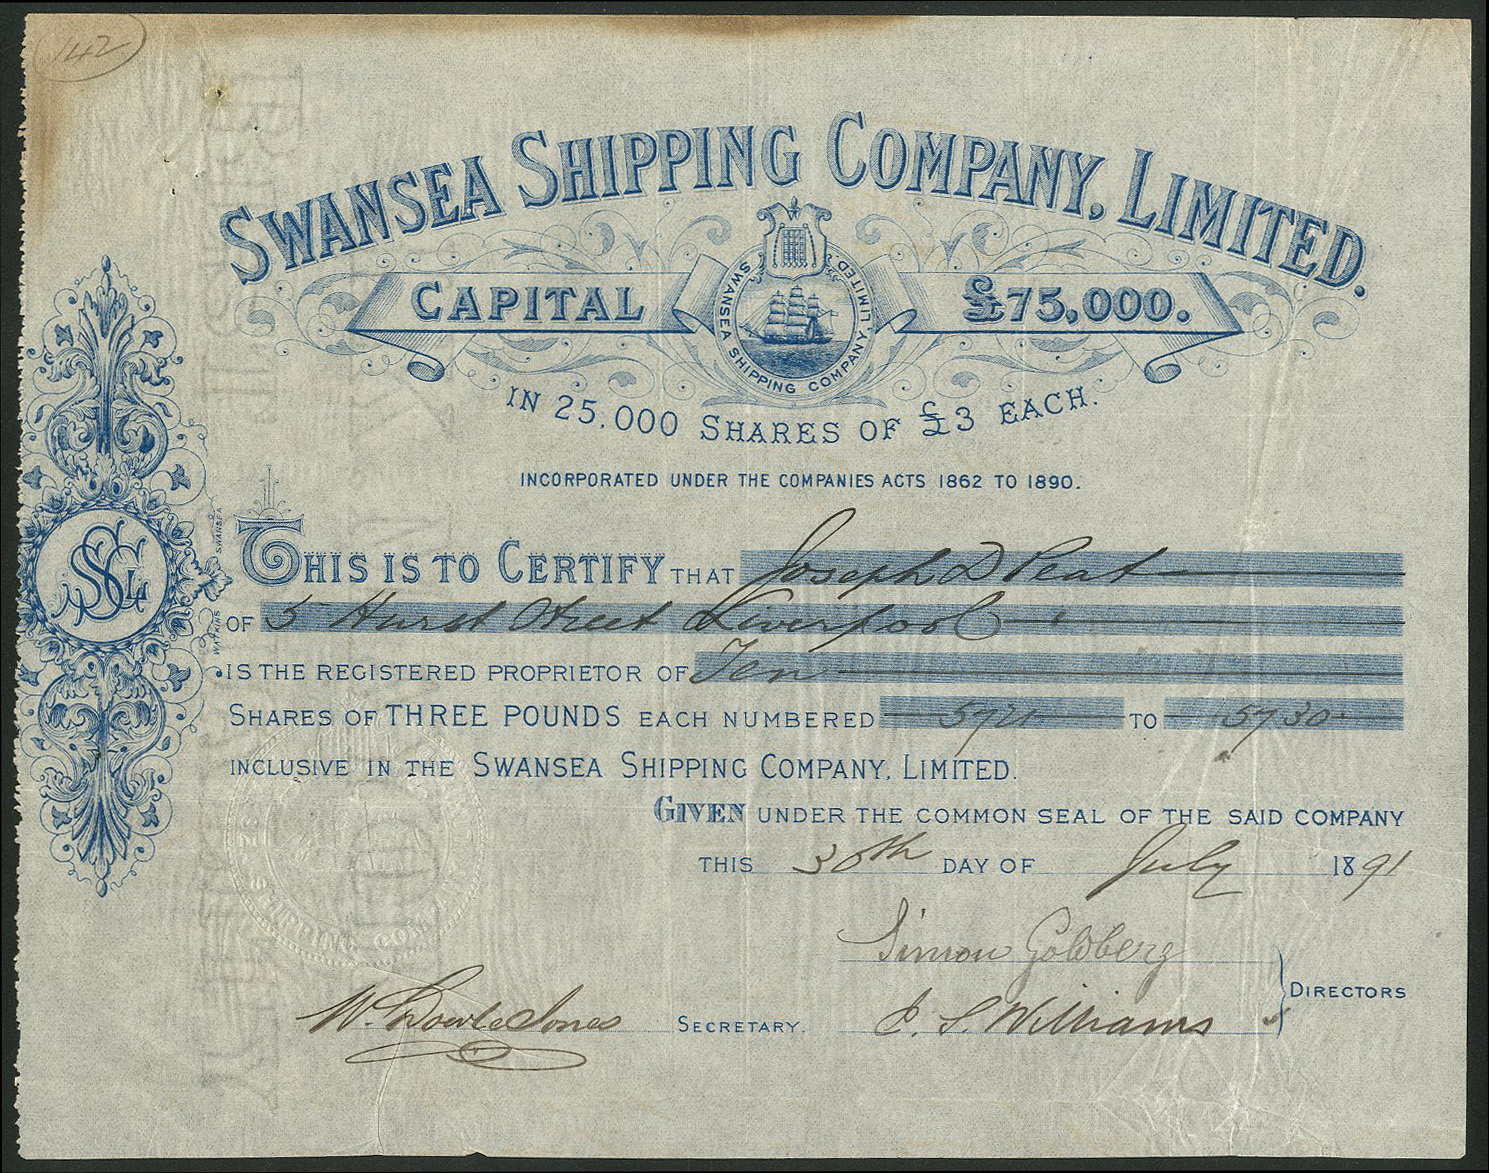 142
SWANSEA SHIPPING COMPANY, LIMITED.
CAPITAL £75,000.
SWANSEA SHIPPING COMPANY, LIMITED.
IN 25,000 SHARES OF £3 EACH.
INCORPORATED UNDER THE COMPANIES ACTS 1862 TO 1890.
THIS IS TO CERTIFY THAT Joseph D Peat
OF 5 Hurst Street Liverpool
IS THE REGISTERED PROPRIETOR OF Ten
SHARES OF THREE POUNDS EACH NUMBERED 5721 TO 5730
INCLUSIVE IN THE SWANSEA SHIPPING COMPANY, LIMITED.
GIVEN UNDER THE COMMON SEAL OF THE SAID COMPANY
THIS 30th DAY OF July 1891
Simon Goldberg
DIRECTORS
W. Bowle Jones SECRETARY. J. S. Williams
SSCL
WATKINS SWANSEA
SHIPPING COMPANY